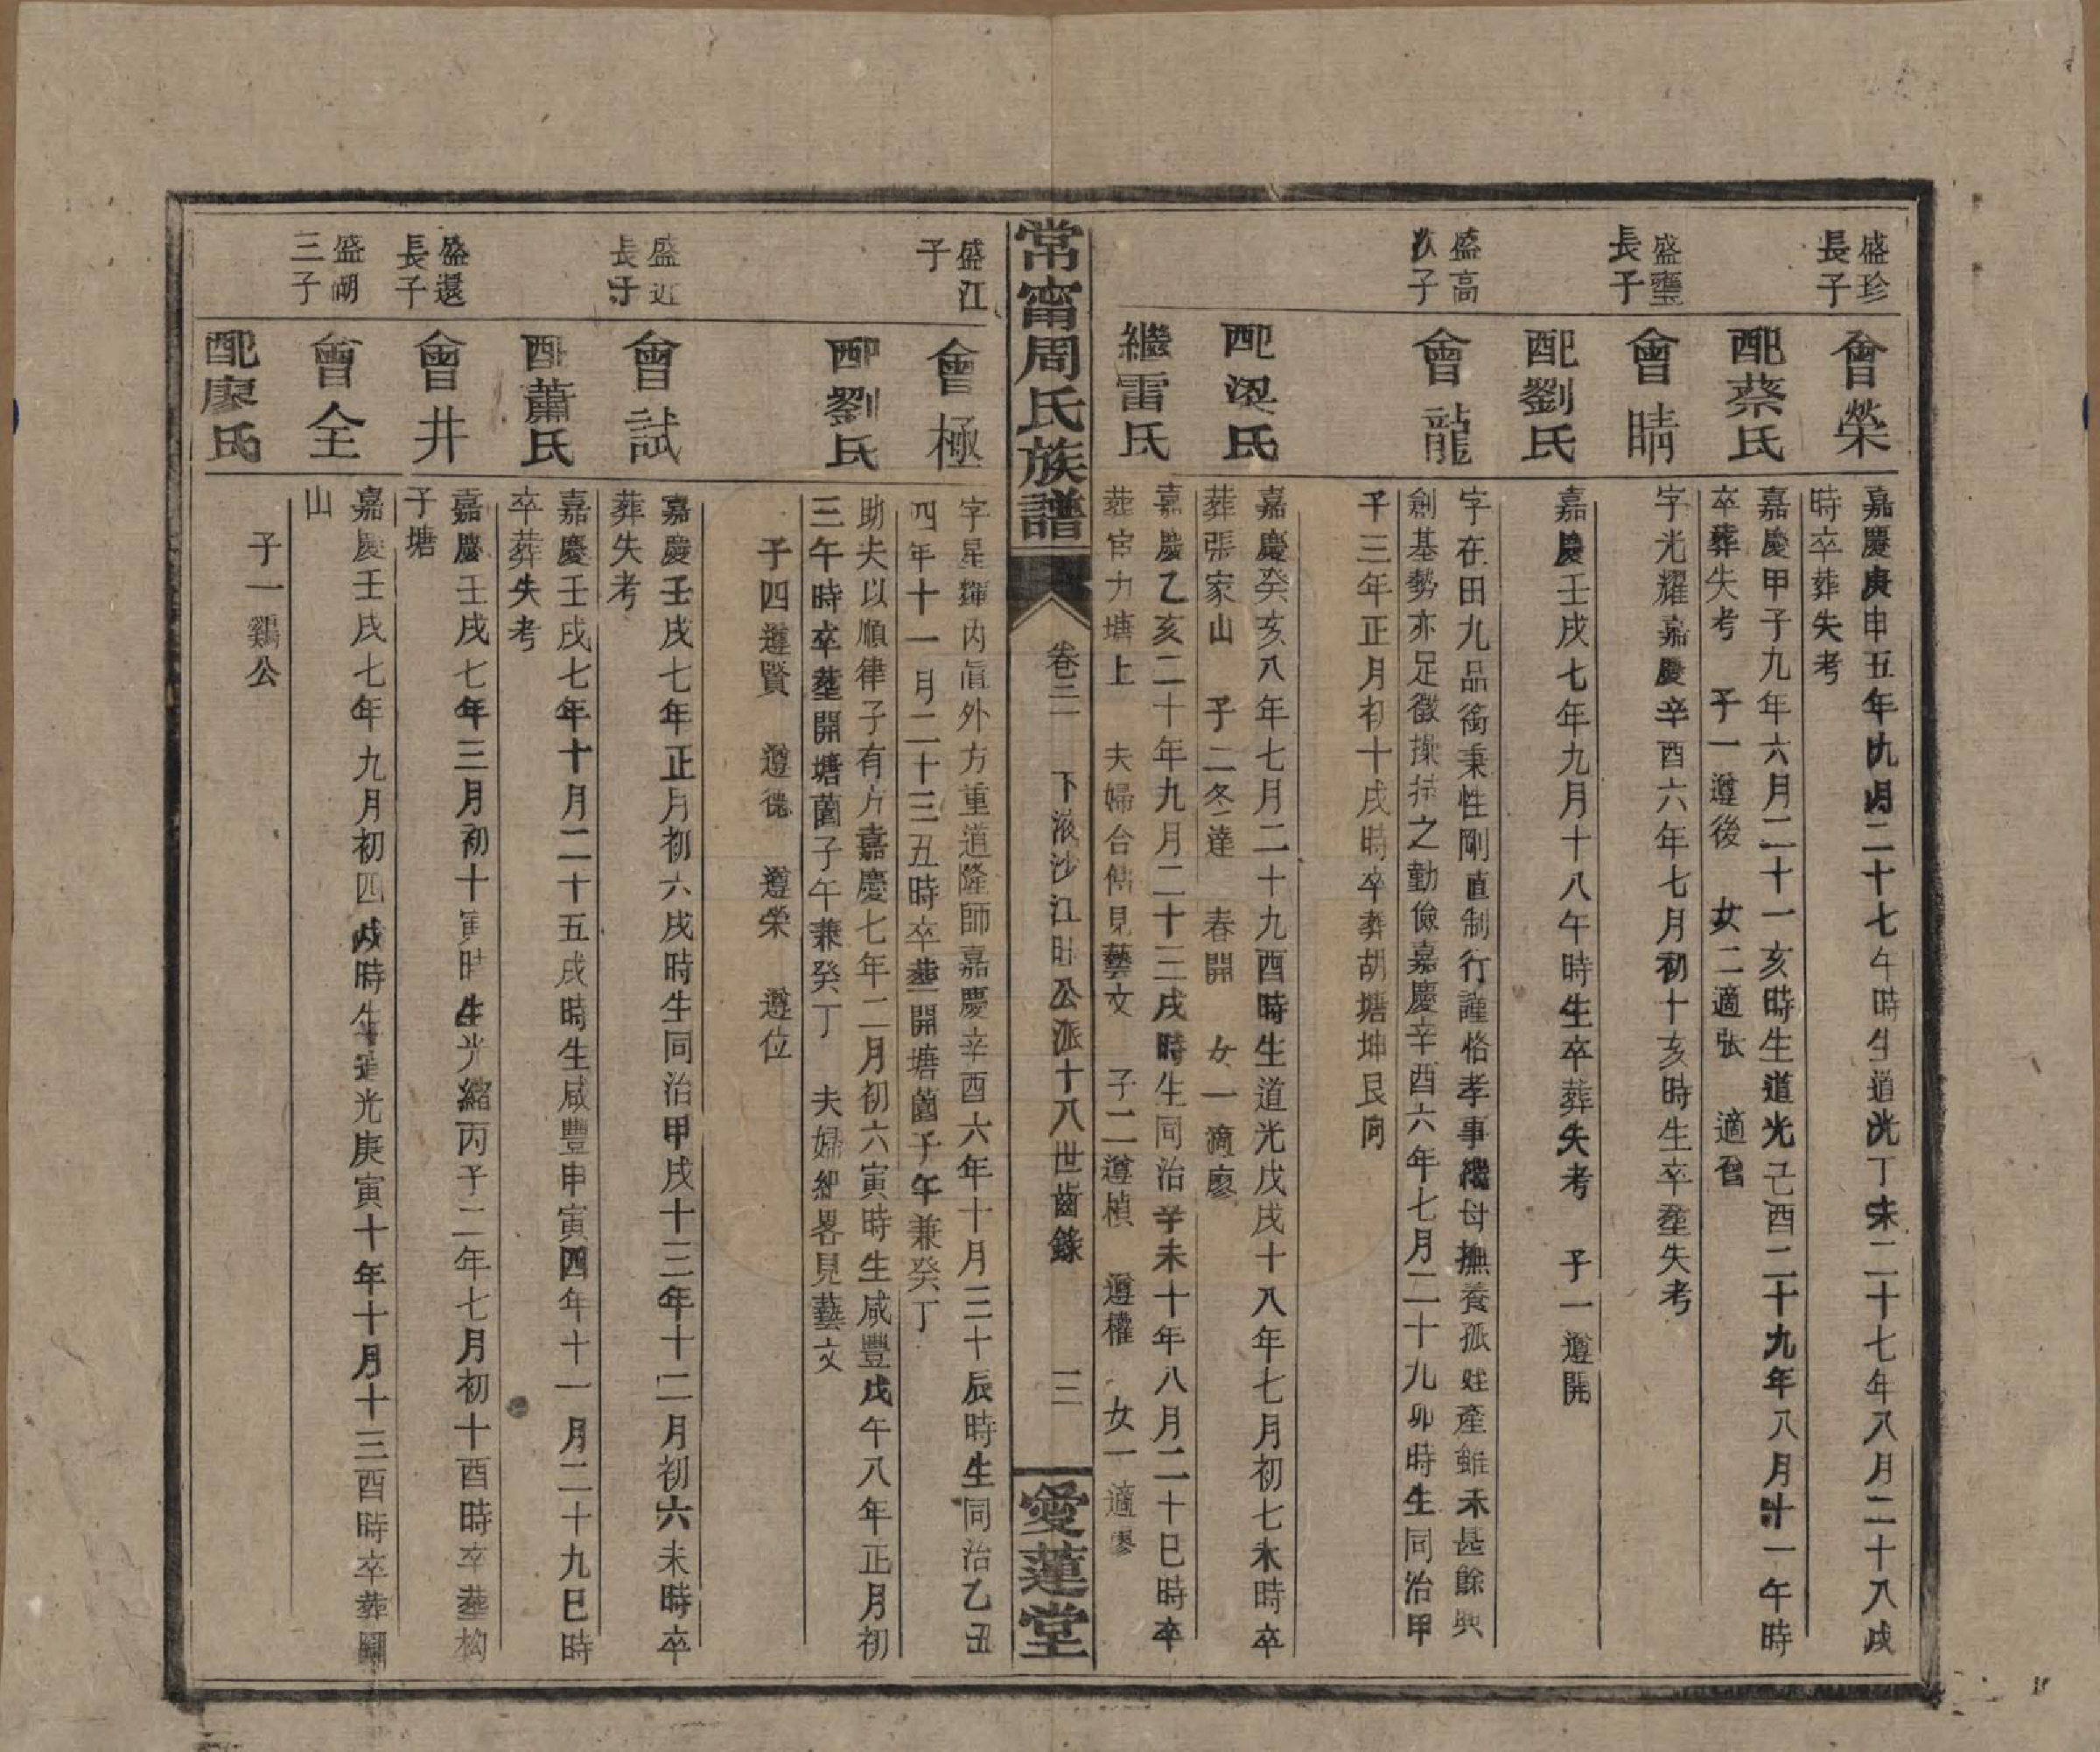 盛珍
長子
會榮
嘉慶庚申五年九月二十七午時生道光丁未二十七年八月二十八戌
時卒葬失考
配蔡氏
嘉慶甲子九年六月二十一亥時生道光己酉二十九年八月十一午時
卒葬失考 子一遵後 女二適張 適
盛璽
長子
會晴
字光耀嘉慶辛酉六年七月初十亥時生卒塟失考
配劉氏
嘉慶壬戌七年九月十八午時生卒葬失考 子一遵開
盛高
次子
會龍
字在田九品銜秉性剛直制行謹恪孝事繼母撫養孤姪產雖未甚餘興
創基勢亦足徵操持之勤儉嘉慶辛酉六年七月二十九卯時生同治甲
子三年正月初十戌時卒葬胡塘坤艮向
配梁氏
嘉慶癸亥八年七月二十九酉時生道光戊戌十八年七月初七未時卒
葬張家山 子二冬達 春開 女一適廖
繼雷氏
嘉慶乙亥二十年九月二十三戌時生同治辛未十年八月二十巳時卒
葬官力塘上 夫婦合傳見藝文 子二遵楨 遵權 女一適廖
常甯周氏族譜
卷三 下液沙江旺公派十八世齒錄 三
愛蓮堂
盛江
子
會極
字星輝內直外方重道隆師嘉慶辛酉六年十月三十辰時生同治乙丑
四年十一月二十三丑時卒塟開塘薗子午兼癸丁
配劉氏
助夫以順律子有方嘉慶七年二月初六寅時生咸豐戊午八年正月初
三午時卒塟開塘薗子午兼癸丁 夫婦紀畧見藝文
子四遵賢 遵德 遵榮 遵位
盛近
長子
會試
嘉慶壬戌七年正月初六戌時生同治甲戌十三年十二月初六未時卒
葬失考
配蕭氏
嘉慶壬戌七年十月二十五戌時生咸豐申寅四年十一月二十九巳時
卒葬失考
盛還
長子
會井
嘉慶壬戌七年三月初十寅時生光緒丙子二年七月初十酉時卒塟栒
子塘
盛湖
三子
會全
嘉慶壬戌七年九月初四戌時生道光庚寅十年十月十三酉時卒葬
山
配廖氏
子一鷄公